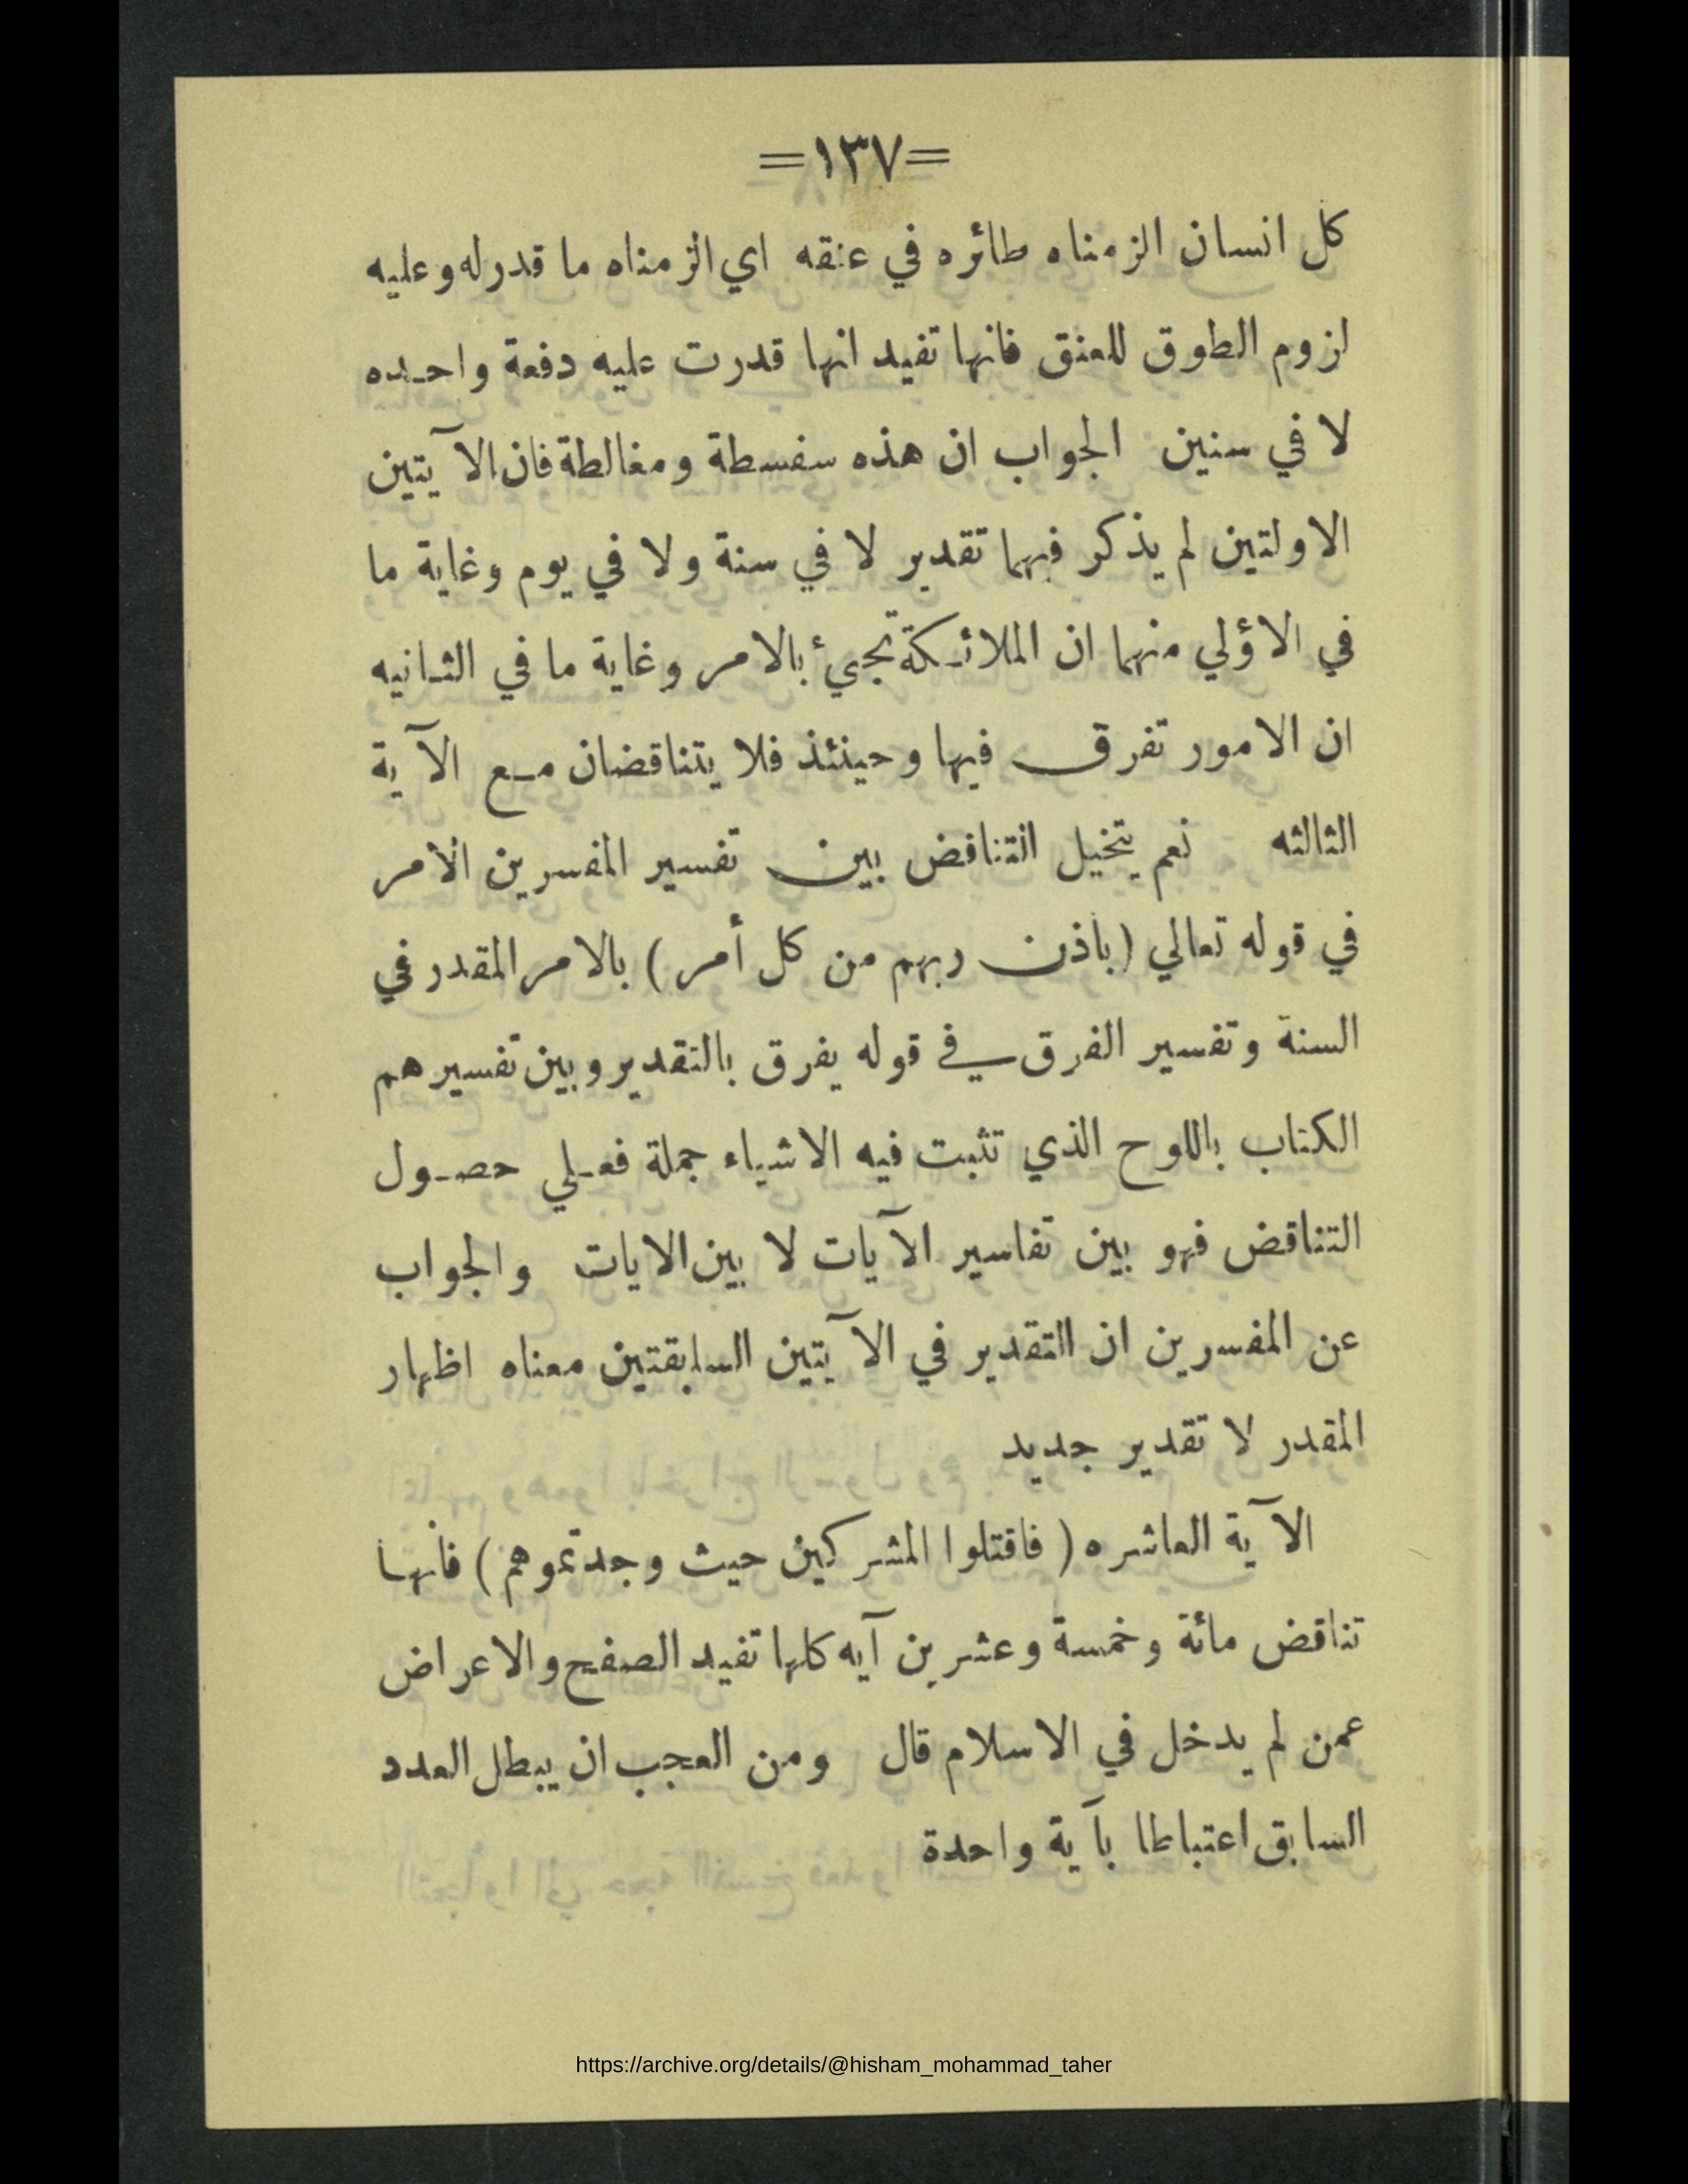 =١٣٧=
كل انسان الزمناه طائره في عنقه اي الزمناه ما قدر له وعليه
لزوم الطوق للعنق فانها تفيد انها قدرت عليه دفعة واحده
لا في سنين الجواب ان هذه سفسطة ومغالطة فان الآيتين
الاولتين لم يذكر فيهما تقدير لا في سنة ولا في يوم وغاية ما
في الاؤلي منهما ان الملائكة تجيئ بالامر وغاية ما في الثانيه
ان الامور تفرق فيها وحينئذ فلا يتناقضان مع الآية
الثالثه نعم يتخيل التناقض بين تفسير المفسرين الأمر
في قوله تعالي (باذن ربهم من كل أمر) بالامر المقدر في
السنة وتفسير الفرق في قوله يفرق بالتقدير وبين تفسيرهم
الكتاب باللوح الذي تثبت فيه الاشياء جملة فعلي حصول
التناقض فهو بين تفاسير الآيات لا بين الايات والجواب
عن المفسرين ان التقدير في الآيتين السابقتين معناه اظهار
المقدر لا تقدير جديد
الآية العاشره (فاقتلوا المشركين حيث وجدتموهم) فانها
تناقض مائة وخمسة وعشرين آيه كلها تفيد الصفح والاعراض
عمن لم يدخل في الاسلام قال ومن العجب ان يبطل العدد
السابق اعتباطا بآية واحدة
https://archive.org/details/@hisham_mohammad_taher